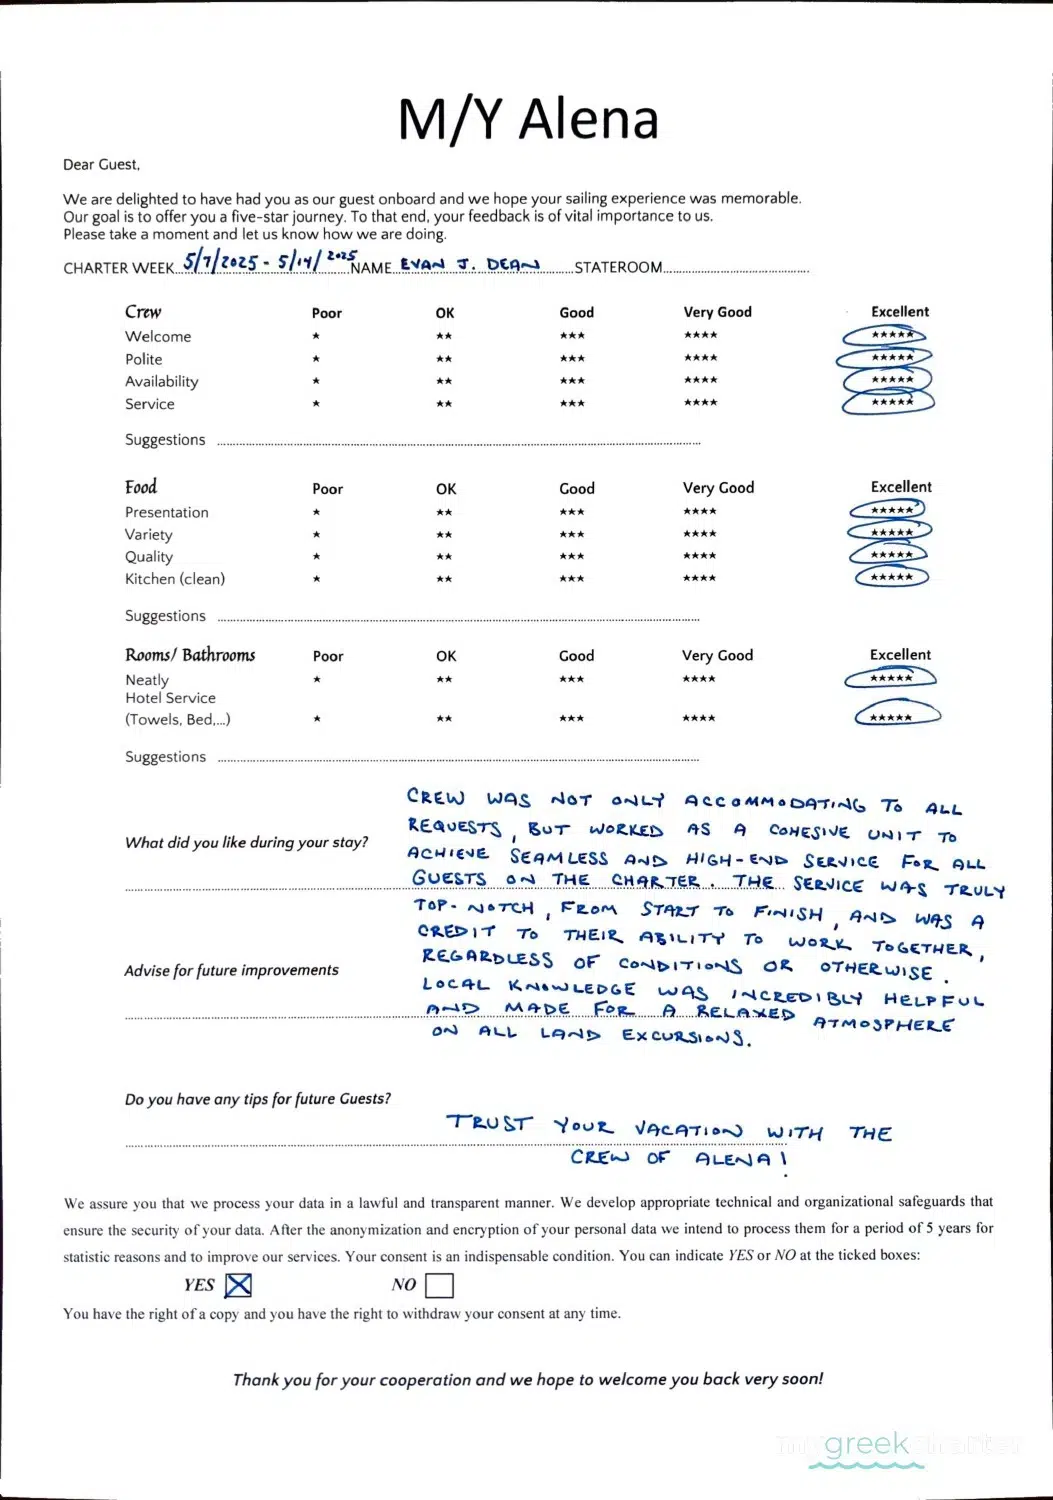 M/Y Alena
Dear Guest,
We are delighted to have had you as our guest onboard and we hope your sailing experience was memorable.
Our goal is to offer you a five-star journey. To that end, your feedback is of vital importance to us.
Please take a moment and let us know how we are doing.
CHARTER WEEK 5/7/2025 - 5/14/2025 NAME EVAN J. DEAN STATEROOM
Crew Poor OK Good Very Good Excellent
Welcome ★ ★★ ★★★ ★★★★ ★★★★★
Polite ★ ★★ ★★★ ★★★★ ★★★★★
Availability ★ ★★ ★★★ ★★★★ ★★★★★
Service ★ ★★ ★★★ ★★★★ ★★★★★
Suggestions
Food Poor OK Good Very Good Excellent
Presentation ★ ★★ ★★★ ★★★★ ★★★★★
Variety ★ ★★ ★★★ ★★★★ ★★★★★
Quality ★ ★★ ★★★ ★★★★ ★★★★★
Kitchen (clean) ★ ★★ ★★★ ★★★★ ★★★★★
Suggestions
Rooms/ Bathrooms Poor OK Good Very Good Excellent
Neatly ★ ★★ ★★★ ★★★★ ★★★★★
Hotel Service
(Towels, Bed,...) ★ ★★ ★★★ ★★★★ ★★★★★
Suggestions
What did you like during your stay?
CREW WAS NOT ONLY ACCOMMODATING TO ALL
REQUESTS, BUT WORKED AS A COHESIVE UNIT TO
ACHIEVE SEAMLESS AND HIGH-END SERVICE FOR ALL
GUESTS ON THE CHARTER. THE SERVICE WAS TRULY
TOP-NOTCH, FROM START TO FINISH, AND WAS A
CREDIT TO THEIR ABILITY TO WORK TOGETHER,
REGARDLESS OF CONDITIONS OR OTHERWISE.
Advise for future improvements
LOCAL KNOWLEDGE WAS INCREDIBLY HELPFUL
AND MADE FOR A RELAXED ATMOSPHERE
ON ALL LAND EXCURSIONS.
Do you have any tips for future Guests?
TRUST YOUR VACATION WITH THE
CREW OF ALENA!
We assure you that we process your data in a lawful and transparent manner. We develop appropriate technical and organizational safeguards that
ensure the security of your data. After the anonymization and encryption of your personal data we intend to process them for a period of 5 years for
statistic reasons and to improve our services. Your consent is an indispensable condition. You can indicate YES or NO at the ticked boxes:
YES NO
You have the right of a copy and you have the right to withdraw your consent at any time.
Thank you for your cooperation and we hope to welcome you back very soon!
mygreekcharter